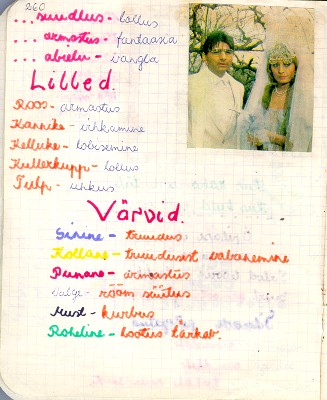 260
...suudlus - lollus
...armastus - fantaasia
...abielu - vangla
Lilled.
Roos - armastus
Kannike - ihkamine
Kelluke - lobisemine
Kullerkupp - lollus
Tulp - uhkus
Värvid.
Sinine - truudus
Kollane - truudusist vabanemine
Punane - armastus
Valge - rõõm süütus
Must - kurbus
Roheline - lootus tärkab.